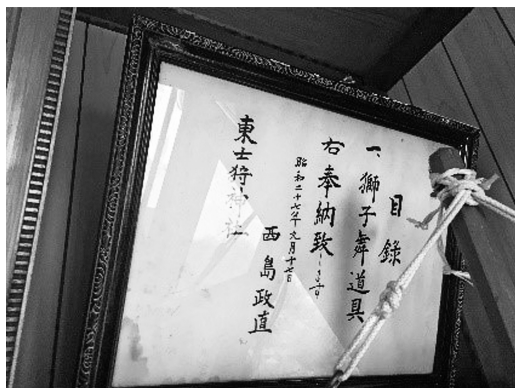 目録
一、獅子舞道具
右奉納致します
昭和二十七年九月十七日
西島政直
東士狩神社